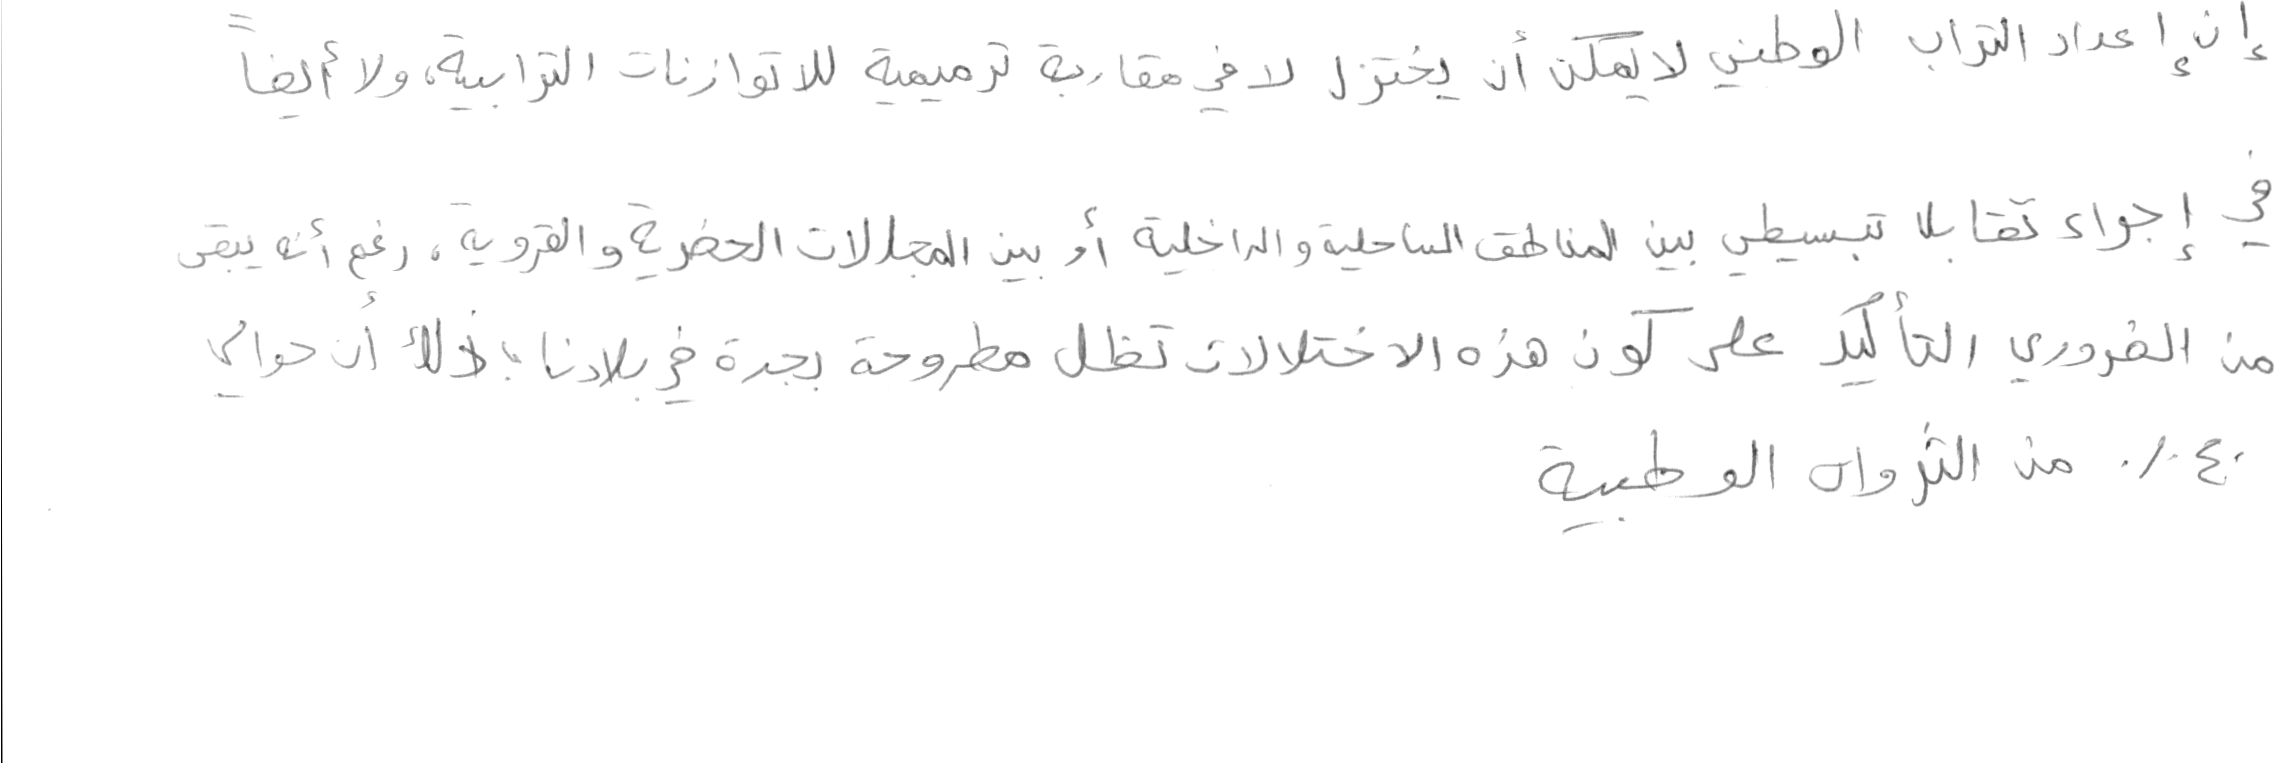 إن إعداد التراب الوطني لا يمكن أن يختزل لا في مقاربة ترميمية للاتوازنات الترابية، ولا أيضاً
في إجراء تقابلا تبسيطي بين المناطق الساحلية والداخلية أو بين المجالات الحضرية والقروية، رغم أنه يبقى
من الضروري التأكيد على كون هذه الاختلالات تظل مطروحة بجدة في بلادنا؛ ذلك أن حوالي
٤٠٪ من الثروات الوطنية